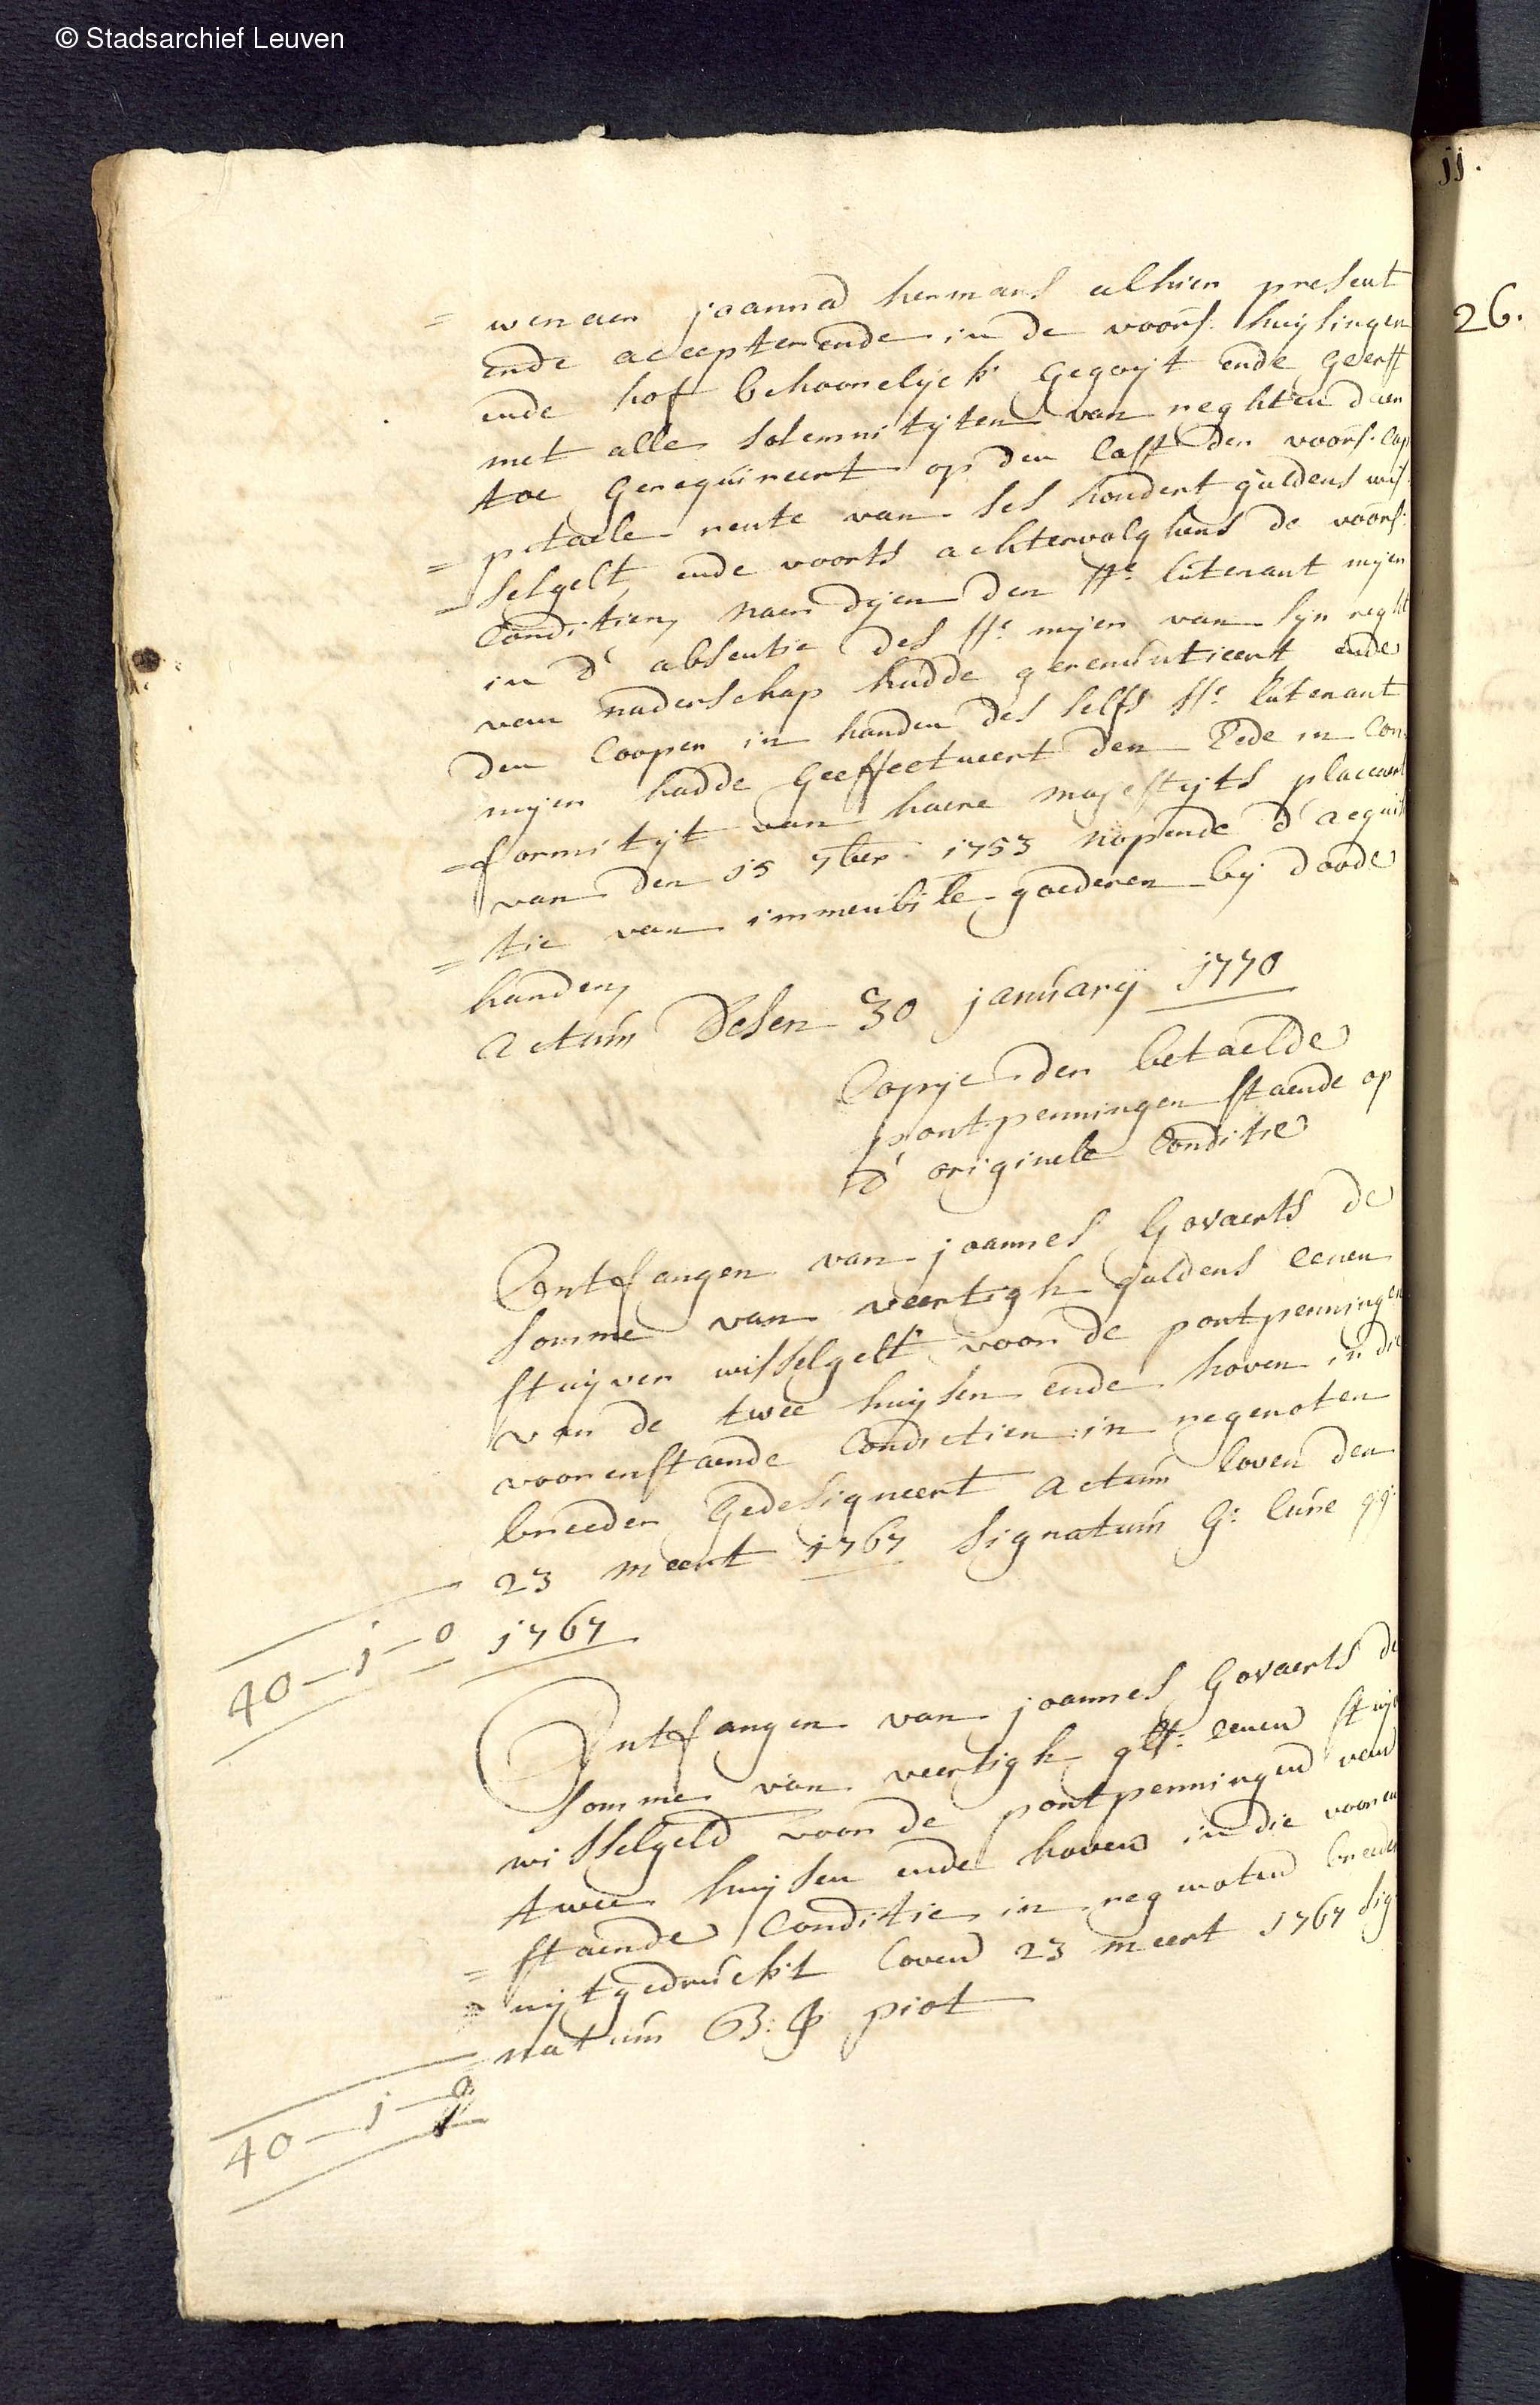 © Stadsarchief Leuven
jj.
26.
= wenaer joanna hermans alhier present
ende accepterende in de voors: huysingen
ende hof behoorelyck gegoyt ende geerft
met alle solemnityten van reghten daer
toe gerequireert op den last der voors: Cap
= pitaele rente van ses hondert guldens wis
= selgelt, ende voorts achtervolghens de voors:
Conditien, naer dyen den hr: lutenant myer
in d' absentie des hr: myer van syn reght
van naderschap hadde gerenuntieert, ende
den Cooper in handen des selfs hr: lutenant
myer hadde geeffectueert den Eede in Con
= formityt van haere majestyts placcaert
van den 15 7ber 1753 nopende d' acquisi
= tie van immeubile goederen by doode
handen,
actum desen 30 january 1770
Copye der betaelde
pontpenningen staende op
d' originele Conditie
Ontfangen van joannes Govaerts de
somme van veertigh guldens eenen
stuyver wisselgelt voor de pontpenningen
van de twee huysen ende hoven in die
voorenstaende Conditien in regenoten
breeder gedesigneert actum loven den
23 meert 1767 signatum G: Cure
40 - 1 - 0 1767
Ontfangen van joannes Govaerts de
somme van veertigh gls: eenen stuyv
wisselgeld voor de pontpenningen van
twee huysen ende hoven in die vooren
= staende Conditie in regenoten breeder
uytgedruckt loven 23 meert 1767 sig
= natum B: P piot
40 - 1 - 0